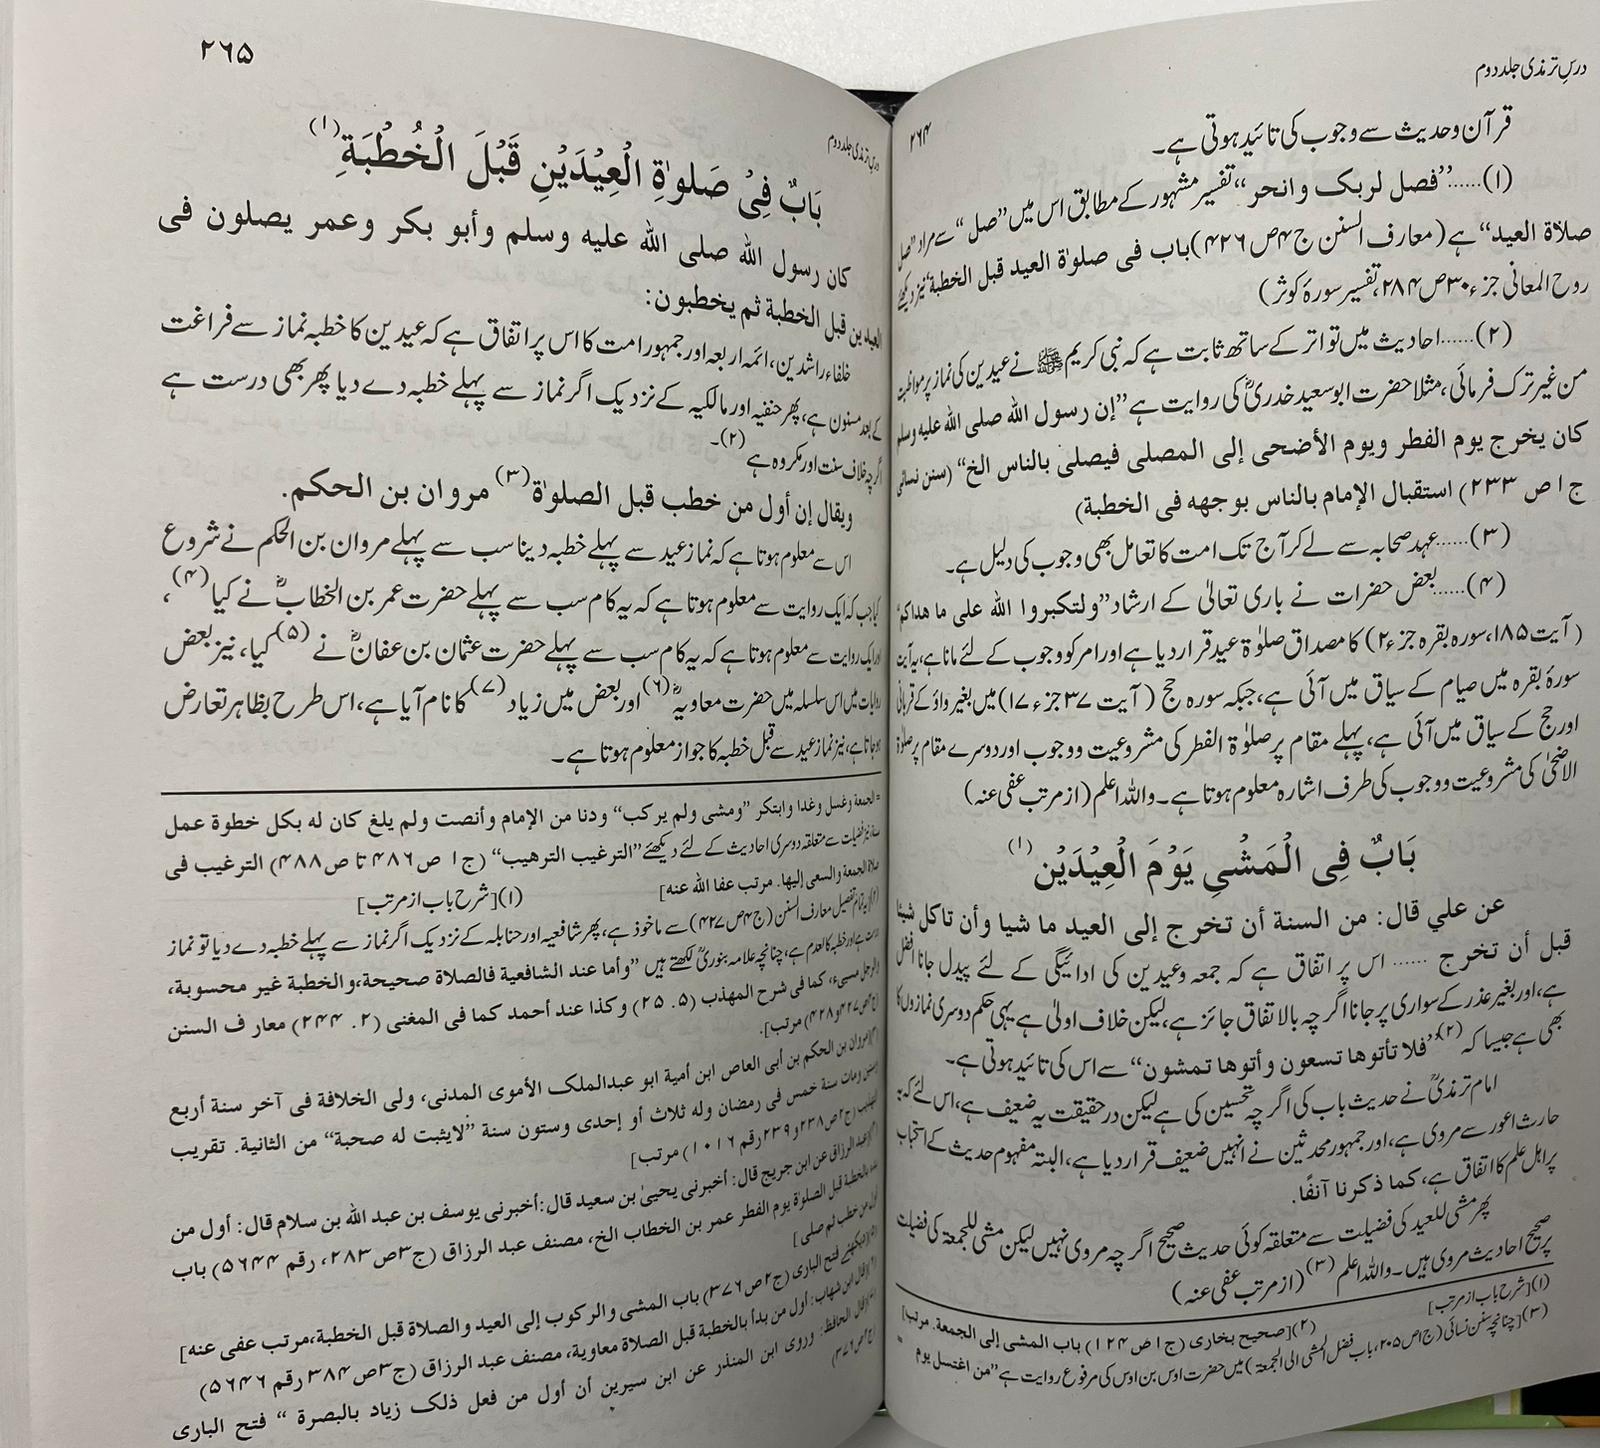 درسِ ترمذی جلد دوم
۲۶۴
قرآن وحدیث سے وجوب کی تائید ہوتی ہے۔
(۱)......”فصل لربک وانحر“ تفسیر مشہور کے مطابق اس میں ”صل“ سے مراد ”صل
صلاة العید“ ہے (معارف السنن ج۴ص۴۲۶) باب فی صلوٰة العید قبل الخطبة نیز دیکھئے
روح المعانی جزء۳۰ص۲۸۴، تفسیر سورۂ کوثر)
(۲)......احادیث میں تواتر کے ساتھ ثابت ہے کہ نبی کریم ﷺ نے عیدین کی نماز پر مواظبت
من غیر ترک فرمائی، مثلاً حضرت ابوسعید خدریؓ کی روایت ہے ”إن رسول الله صلی الله علیه وسلم
کان یخرج یوم الفطر ویوم الأضحی إلی المصلی فیصلی بالناس الخ“ (سنن نسائی
ج۱ص۲۳۳) استقبال الإمام بالناس بوجهه فی الخطبة)
(۳)......عہد صحابہ سے لے کر آج تک امت کا تعامل بھی وجوب کی دلیل ہے۔
(۴)......بعض حضرات نے باری تعالیٰ کے ارشاد ”ولتکبروا الله علی ما هداکم“
(آیت ۱۸۵، سورہ بقرہ جزء۲) کا مصداق صلوٰة عید قرار دیا ہے اور امر کو وجوب کے لئے مانا ہے، یہ آیت
سورۂ بقرہ میں صیام کے سیاق میں آئی ہے، جبکہ سورہ حج (آیت ۳۷ جزء ۱۷) میں بغیر واؤ کے قربانی
اور حج کے سیاق میں آئی ہے، پہلے مقام پر صلوٰة الفطر کی مشروعیت ووجوب اور دوسرے مقام پر صلوٰة
الاضحیٰ کی مشروعیت ووجوب کی طرف اشارہ معلوم ہوتا ہے۔ واللہ اعلم (از مرتب عفی عنہ)
بَابٌ فِی الْمَشْیِ یَوْمَ الْعِیْدَیْنِ (۱)
عن علي قال: من السنة أن تخرج إلى العید ما شیا وأن تاکل شیئا
قبل أن تخرج ...... اس پر اتفاق ہے کہ جمعہ وعیدین کی ادائیگی کے لئے پیدل جانا افضل
ہے، اور بغیر عذر کے سواری پر جانا اگرچہ بالاتفاق جائز ہے، لیکن خلاف اولیٰ ہے یہی حکم دوسری نمازوں کا
بھی ہے جیسا کہ (۲) ”فلا تأتوها تسعون وأتوها تمشون“ سے اس کی تائید ہوتی ہے۔
امام ترمذیؒ نے حدیث باب کی اگرچہ تحسین کی ہے لیکن درحقیقت یہ ضعیف ہے، اس لئے کہ یہ
حارث اعور سے مروی ہے، اور جمہور محدثین نے انہیں ضعیف قرار دیا ہے، البتہ مفہوم حدیث کے استحباب
پر اہل علم کا اتفاق ہے، کما ذکرنا آنفًا.
پھر مشی للعید کی فضیلت سے متعلقہ کوئی حدیث صحیح اگرچہ مروی نہیں لیکن مشی للجمعۃ کی فضیلت
پر صحیح احادیث مروی ہیں۔ واللہ اعلم (۳) (از مرتب عفی عنہ)
(۱)[شرح باب از مرتب]
(۲)[صحیح بخاری (ج۱ص۱۲۴) باب المشی إلی الجمعة. مرتب]
(۳)[چنانچہ سنن نسائی (ج۱ص۲۰۵، باب فضل المشی الی الجمعة) میں حضرت اوس بن اوس کی مرفوع روایت ہے ”من اغتسل یوم =
درسِ ترمذی جلد دوم
۲۶۵
بَابٌ فِیْ صَلوٰةِ الْعِیْدَیْنِ قَبْلَ الْخُطْبَةِ (۱)
کان رسول الله صلی الله علیه وسلم وأبو بکر وعمر یصلون فی
العیدین قبل الخطبة ثم یخطبون:
خلفاء راشدین، ائمہ اربعہ اور جمہور امت کا اس پر اتفاق ہے کہ عیدین کا خطبہ نماز سے فراغت
کے بعد مسنون ہے، پھر حنفیہ اور مالکیہ کے نزدیک اگر نماز سے پہلے خطبہ دے دیا پھر بھی درست ہے
اگرچہ خلاف سنت اور مکروہ ہے (۲)۔
ویقال إن أول من خطب قبل الصلوٰة (۳) مروان بن الحکم.
اس سے معلوم ہوتا ہے کہ نماز عید سے پہلے خطبہ دینا سب سے پہلے مروان بن الحکم نے شروع
کیا جب کہ ایک روایت سے معلوم ہوتا ہے کہ یہ کام سب سے پہلے حضرت عمر بن الخطابؓ نے کیا (۴)،
اور ایک روایت سے معلوم ہوتا ہے کہ یہ کام سب سے پہلے حضرت عثمان بن عفانؓ نے (۵) کیا، نیز بعض
روایات میں اس سلسلہ میں حضرت معاویہؓ (۶) اور بعض میں زیاد (۷) کا نام آیا ہے، اس طرح بظاہر تعارض
ہو جاتا ہے، نیز نماز عید سے قبل خطبہ کا جواز معلوم ہوتا ہے۔
= الجمعة وغسل وغدا وابتکر ”ومشی ولم یرکب“ ودنا من الإمام وأنصت ولم یلغ کان له بکل خطوة عمل
سنة، نیز فضیلت سے متعلقہ دوسری احادیث کے لئے دیکھئے ”الترغیب الترهیب“ (ج۱ ص۴۸۶ تا ص۴۸۸) الترغیب فی
صلاة الجمعة والسعی إلیها. مرتب عفا الله عنه]
(۱)[شرح باب از مرتب]
(۲)[یہ تمام تفصیل معارف السنن (ج۴ص۴۲۷) سے ماخوذ ہے، پھر شافعیہ اور حنابلہ کے نزدیک اگر نماز سے پہلے خطبہ دے دیا تو نماز
درست ہے اور خطبہ کالعدم ہے، چنانچہ علامہ بنوریؒ لکھتے ہیں ”وأما عند الشافعیة فالصلاة صحیحة، والخطبة غیر محسوبة،
والرجل مسیء، کما فی شرح المهذب (۵. ۲۵) وکذا عند أحمد کما فی المغنی (۲. ۲۴۴) معارف السنن
(ج۴ص۴۲۷و۴۲۸) مرتب].
(۳)[مروان بن الحکم بن أبی العاص ابن أمیة ابو عبدالملک الأموی المدنی، ولی الخلافة فی آخر سنة أربع
وستین ومات سنة خمس فی رمضان وله ثلاث أو إحدی وستون سنة ”لایثبت له صحبة“ من الثانیة. تقریب
التهذیب (ج۲ص۲۳۸و۲۳۹رقم ۱۰۱۶) مرتب]
(۴)[عبد الرزاق عن ابن جریج قال: أخبرنی یحییٰ بن سعید قال: أخبرنی یوسف بن عبد الله بن سلام قال: أول من
بدء بالخطبة قبل الصلوٰة یوم الفطر عمر بن الخطاب الخ، مصنف عبد الرزاق (ج۳ص۲۸۳، رقم ۵۶۴۴) باب
أول من خطب ثم صلی]
(۵)[دیکھئے فتح الباری (ج۲ص۳۷۶) باب المشی والرکوب إلی العید والصلاة قبل الخطبة، مرتب عفی عنه]
(۶)[قال ابن شهاب: أول من بدأ بالخطبة قبل الصلاة معاویة، مصنف عبد الرزاق (ج۳ص۳۸۴ رقم ۵۶۴۶)
(۷)[قال الحافظ: وروی ابن المنذر عن ابن سیرین أن أول من فعل ذلک زیاد بالبصرة “ فتح الباری
(ج۲ص۳۷۶)